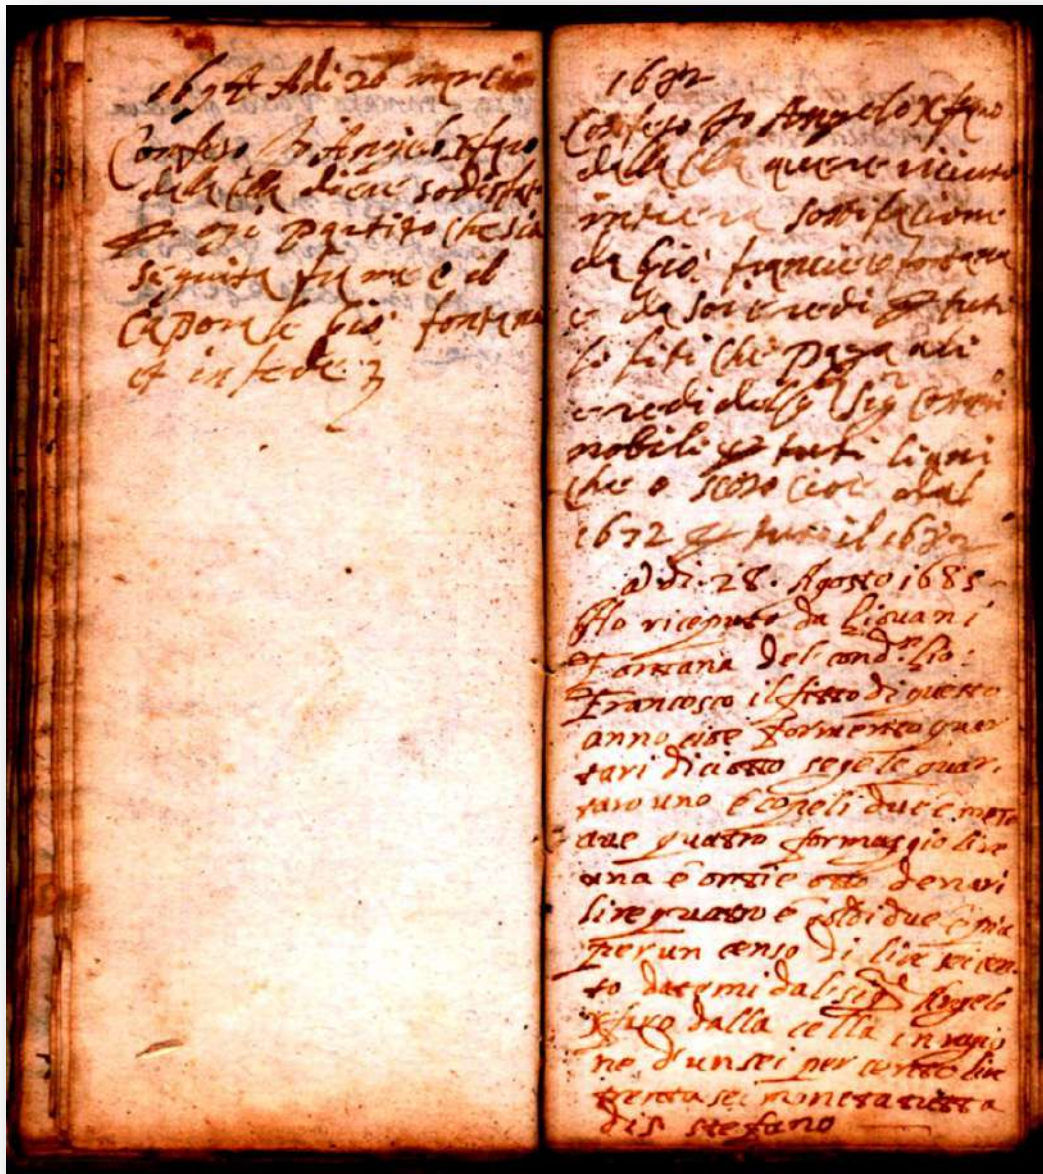 Adi 26 marcio
Confeso Io Angelo Xfaro
dalla Cella di
ogni partito che sia
seguita fra me e il
Caporale Gio: fontana
et in fede
1682
Confeso Io Angelo Xfaro
dalla Cella
intiera
da Gio: francesco fontana
e da soi eredi per tuti
li fiti che paga ali
eredi dell Sig
nobili per tuti li ani
che scorso cioe dal
1672 per tuto il 1682
Adi 28. Agosto 1685
Ho riceputo da Giouani
Fontana del cond.m Gio:
Francesco il fitto di questo
anno cioe formento quar
tari diciotto segele quar,
taro uno e copeli due e mete
que quatro formaggio lire
una e onzie otto denari
lire quatro e soldi due e piu
per un censo di lire seicen,
to datemi dal sig.r Angelo
Xfaro dalla cella in ragio
ne d'un sei per cento lire
trenta sei moneta tutta
di S. Stefano